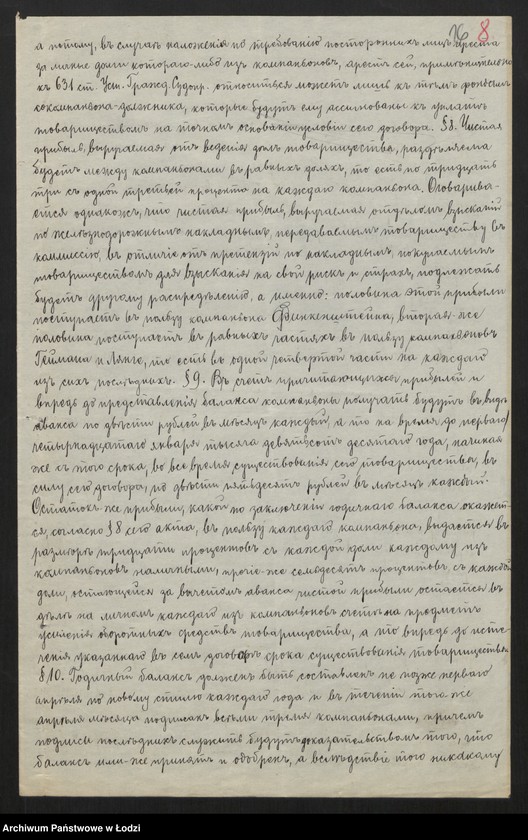 16 8.
а потому, въ случаѣ наложенія по требованію постороннихъ лицъ ареста
за личные долги котораго-либо изъ компаньоновъ, арестъ сей, примѣнительно
къ 631 ст. Уст. Гражд. Судопр. относиться можетъ лишь къ тѣмъ фондамъ
сокомпаньона-должника, которые будутъ ему ассигнованы къ уплатѣ
товариществомъ на точномъ основаніи условій сего договора. §8. Чистая
прибыль, вырученная отъ веденія дѣлъ товарищества, раздѣляема
будетъ между компаньонами въ равныхъ доляхъ, то есть по тридцать
три съ одной третьей процента на каждаго компаньона. Оговаривает-
ется однакожъ, что чистая прибыль, вырученная отдѣломъ взысканій
по желѣзнодорожнымъ накладнымъ, передаваемымъ товариществу въ
коммиссію, въ отличіе отъ претензій по накладнымъ, покупаемымъ
товариществомъ для взысканія на свой рискъ и страхъ, подлежать
будетъ другому распредѣленію, а именно: половина этой прибыли
поступаетъ въ пользу компаньона Финкенштейна, вторая-же
половина поступаетъ въ равныхъ частяхъ въ пользу компаньоновъ
Геймана и Лянге, то есть въ одной четвертой части на каждаго
изъ сихъ послѣднихъ. §9. Въ счетъ причитающихся прибылей и
впредь до представленія баланса компаньоны получать будутъ въ видѣ
аванса по двѣсти рублей въ мѣсяцъ каждый, а то на время до перваго/
четырнадцатаго января тысяча девятьсотъ десятаго года, начиная
же съ того срока, во все время существованія сего товарищества, въ
силу сего договора, по двѣсти пятьдесятъ рублей въ мѣсяцъ каждый.
Остатокъ-же прибыли, какой по заключеніи годичнаго баланса окажет-
ся, согласно §8 сего акта, въ пользу каждаго компаньона, выдается въ
размѣрѣ тридцати процентовъ съ каждой доли каждому изъ
компаньоновъ наличными, прочіе-же семьдесятъ процентовъ, съ каждой
доли, остающейся за вычетомъ аванса чистой прибыли остается въ
дѣлѣ на личномъ каждаго изъ компаньоновъ счетѣ на предметъ
усиленія оборотныхъ средствъ товарищества, а то впредь до исте-
ченія указаннаго въ семъ договорѣ срока существованія товарищества.
§10. Годичный балансъ долженъ быть составленъ не позже перваго
апрѣля по новому стилю каждаго года и въ теченіи того же
апрѣля мѣсяца подписанъ всѣми тремя компаньонами, причемъ
подписи послѣднихъ служить будутъ доказательствомъ того, что
балансъ ими-же принятъ и одобренъ, а вслѣдствіе того никакому
Archiwum Państwowe w Łodzi